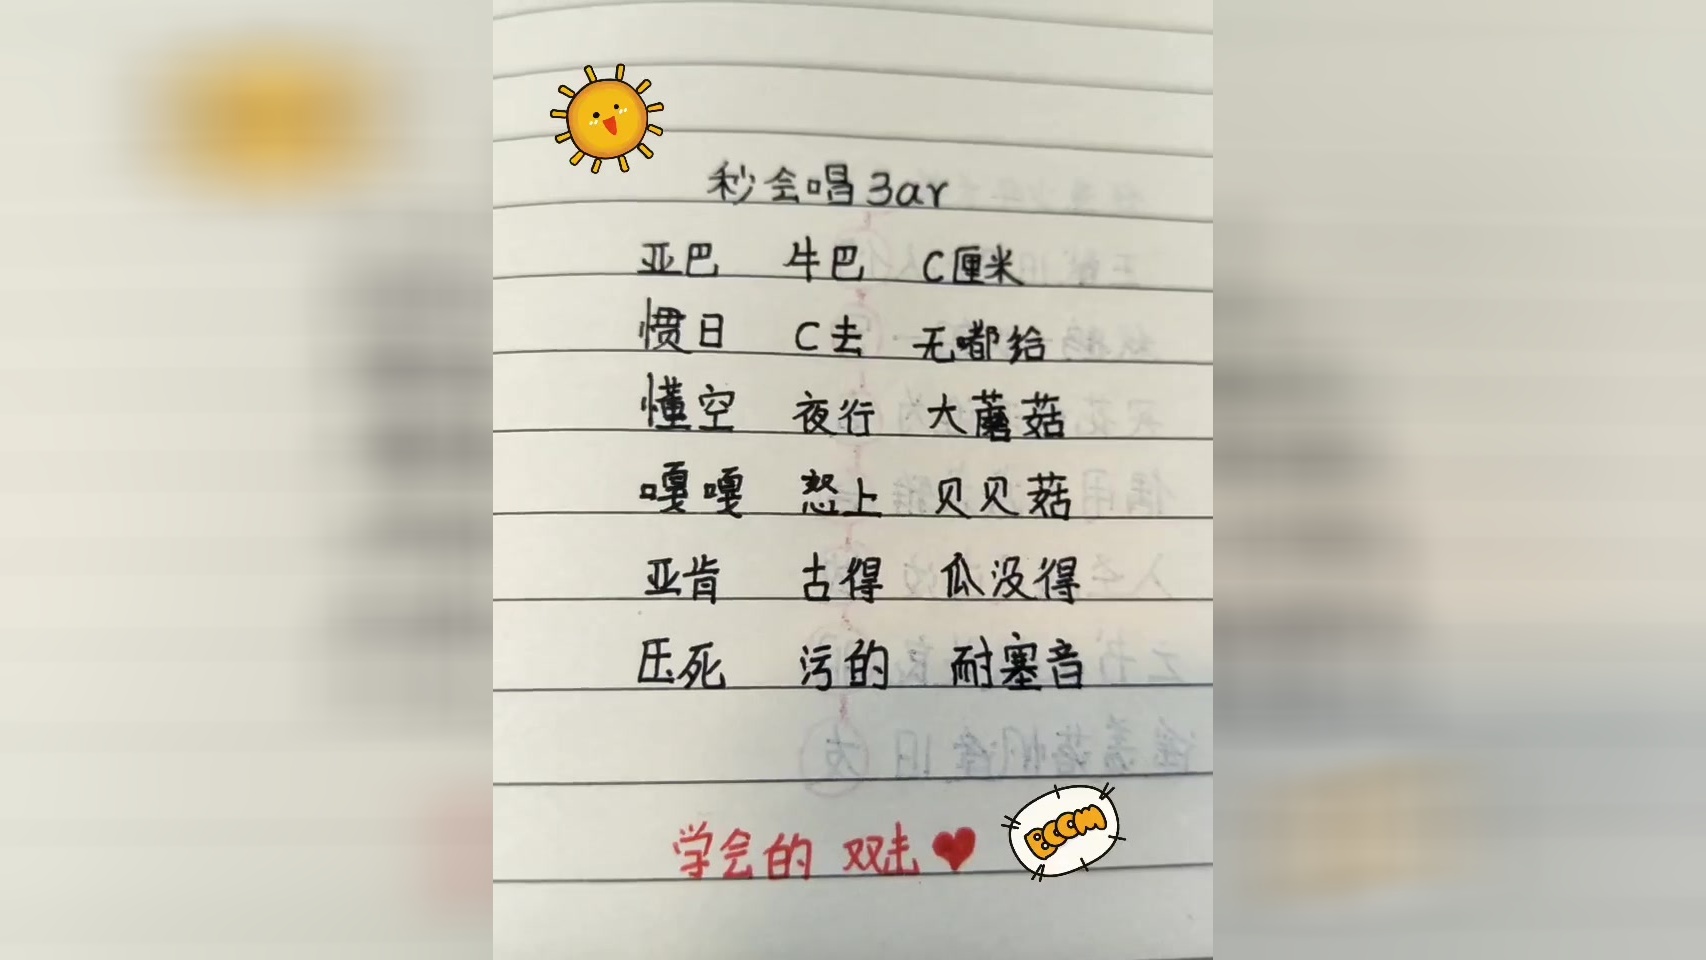 秒会唱3ar
亚巴 牛巴 C厘米
惯日 C去 无嘟给
懂空 夜行 大蘑菇
嘎嘎 怒上 贝贝菇
亚肯 古得 瓜没得
压死 污的 耐塞音
学会的 双击
BOOM